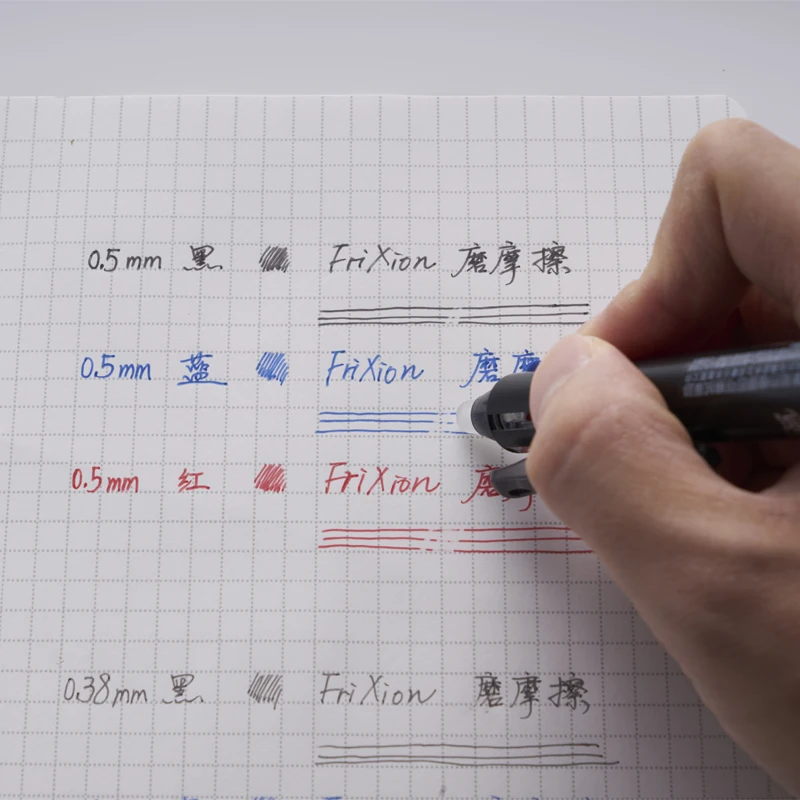 0.5mm 黑 FriXion 磨摩擦
0.5mm 蓝 FriXion 磨摩
0.5mm 红 FriXion 磨
0.38mm 黑 FriXion 磨摩擦